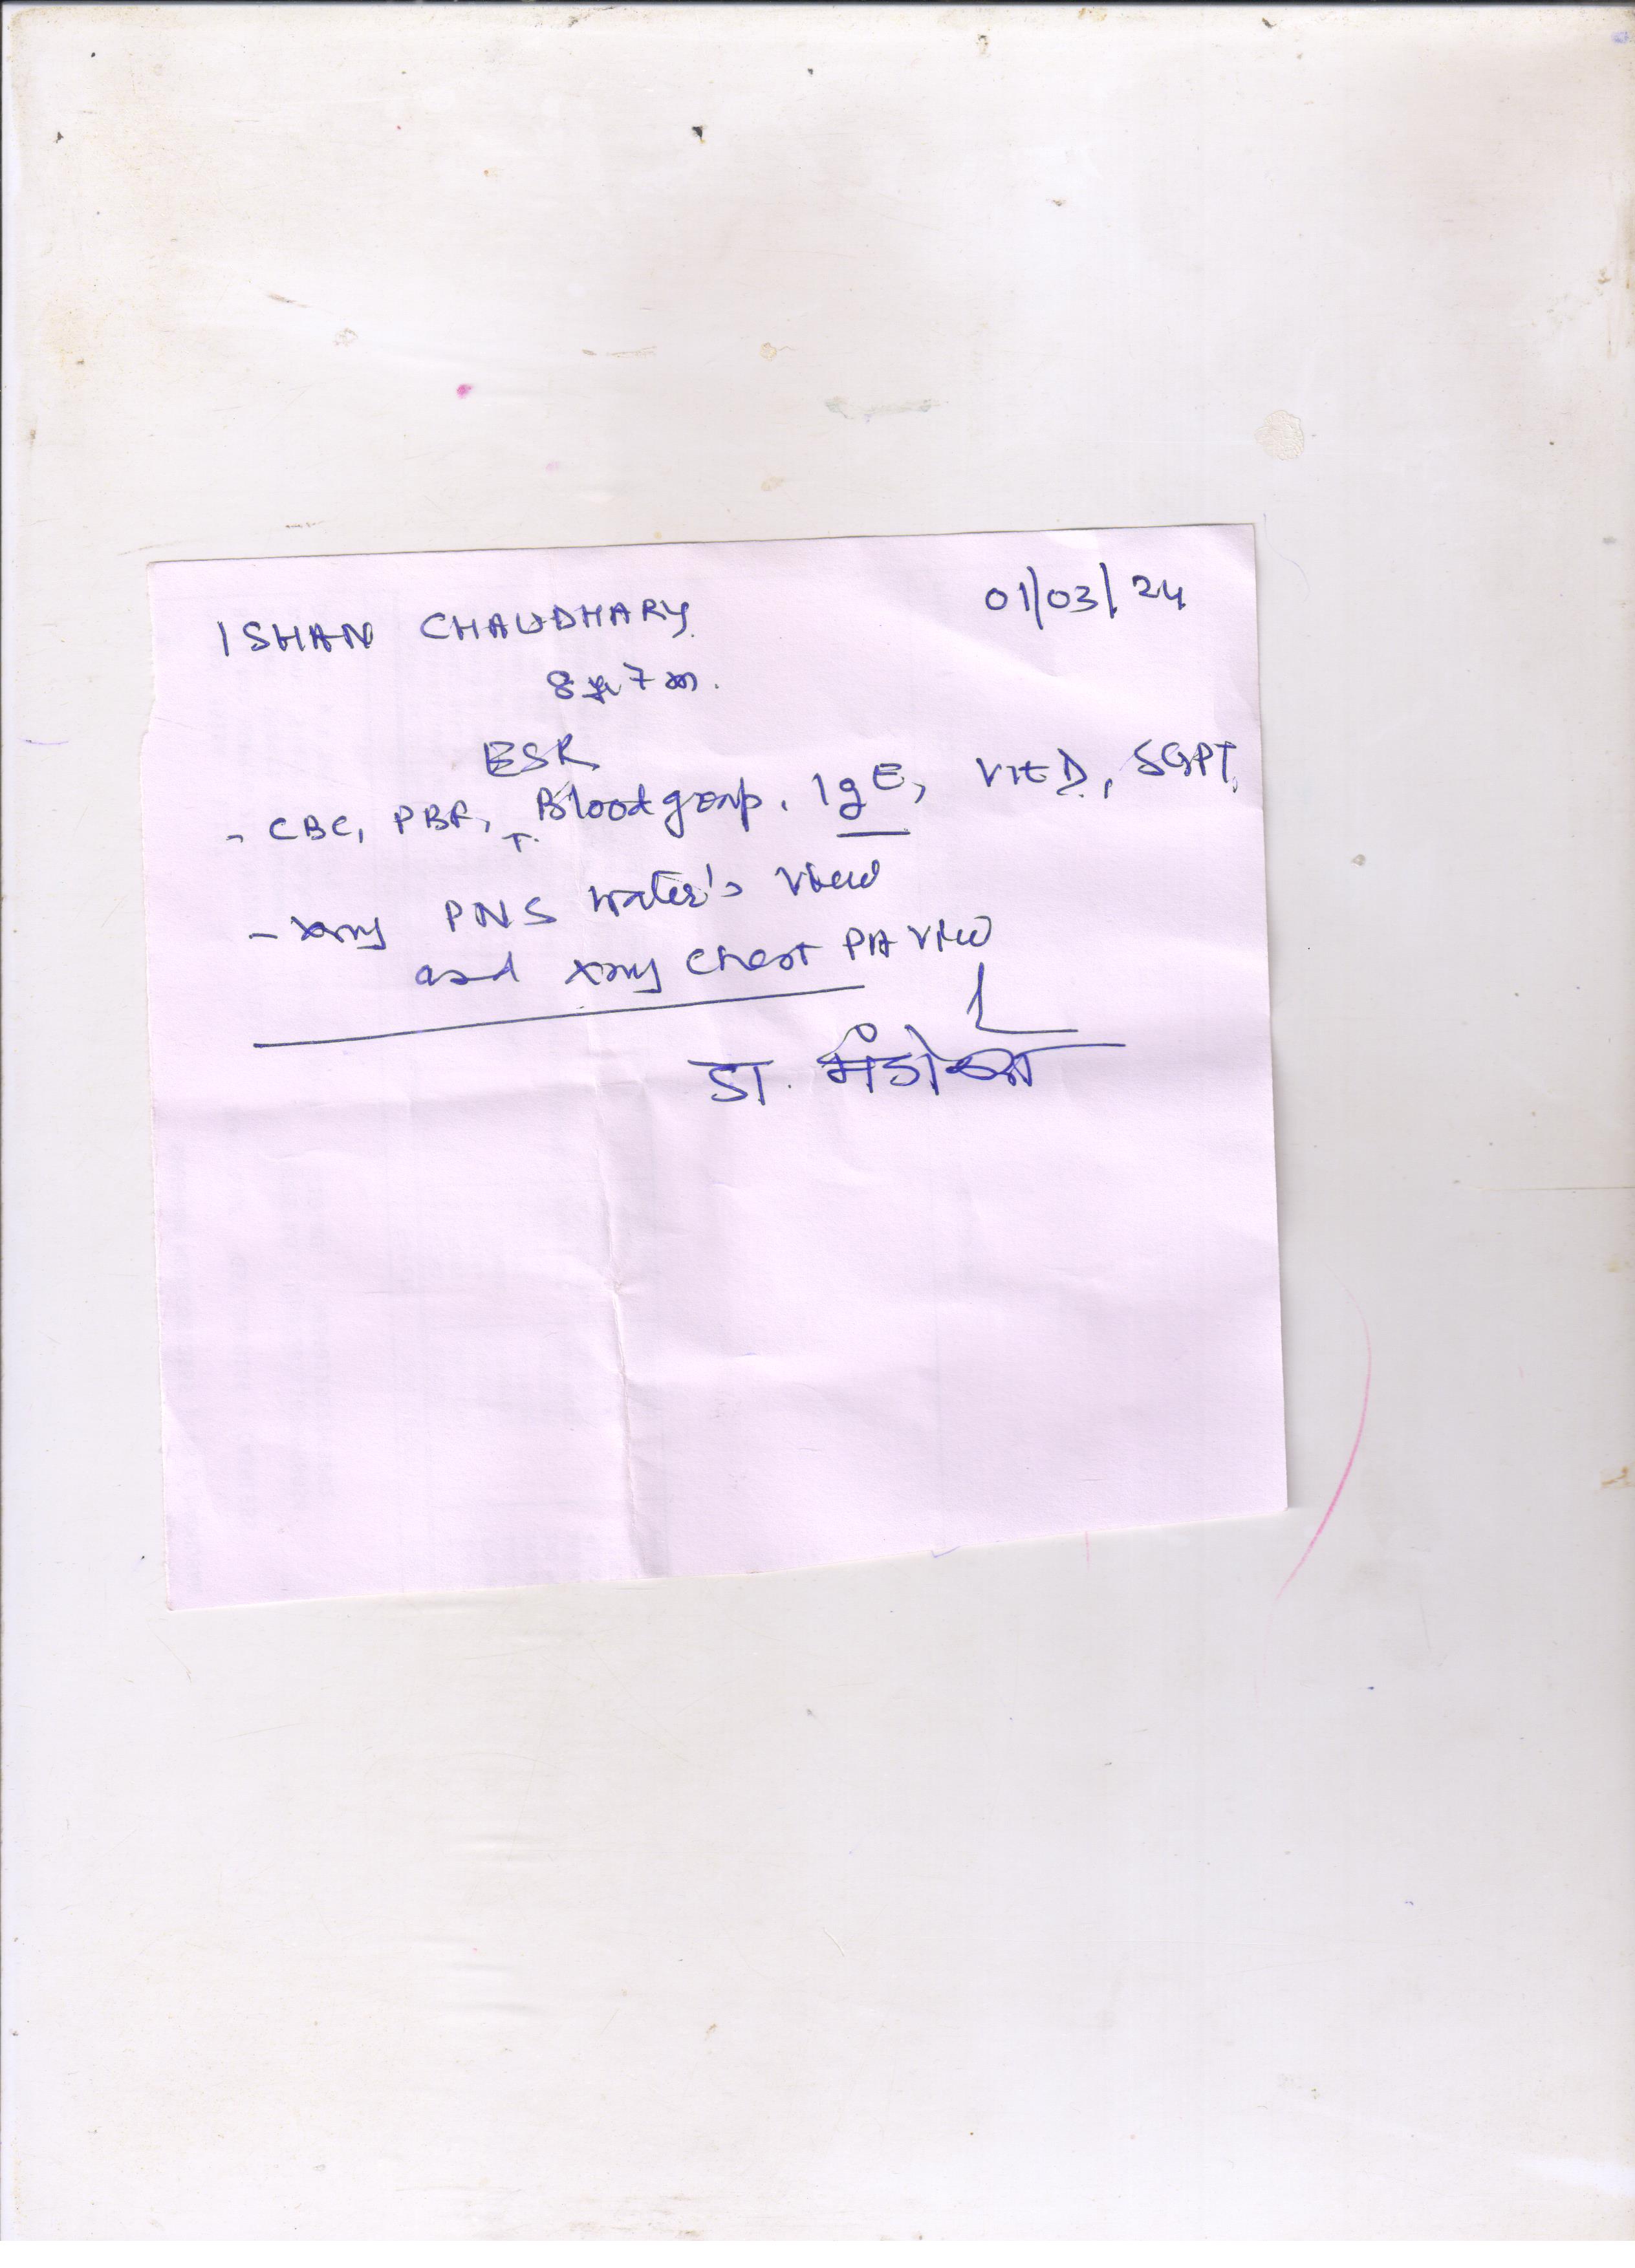 ISHAN CHAUDHARY 01/03/24
8 yr 7 m.
ESR
- CBC, PBF, Blood group, IgE, Vit D, SGPT,
- Xray PNS Water's View
and Xray Chest PA View
डा.